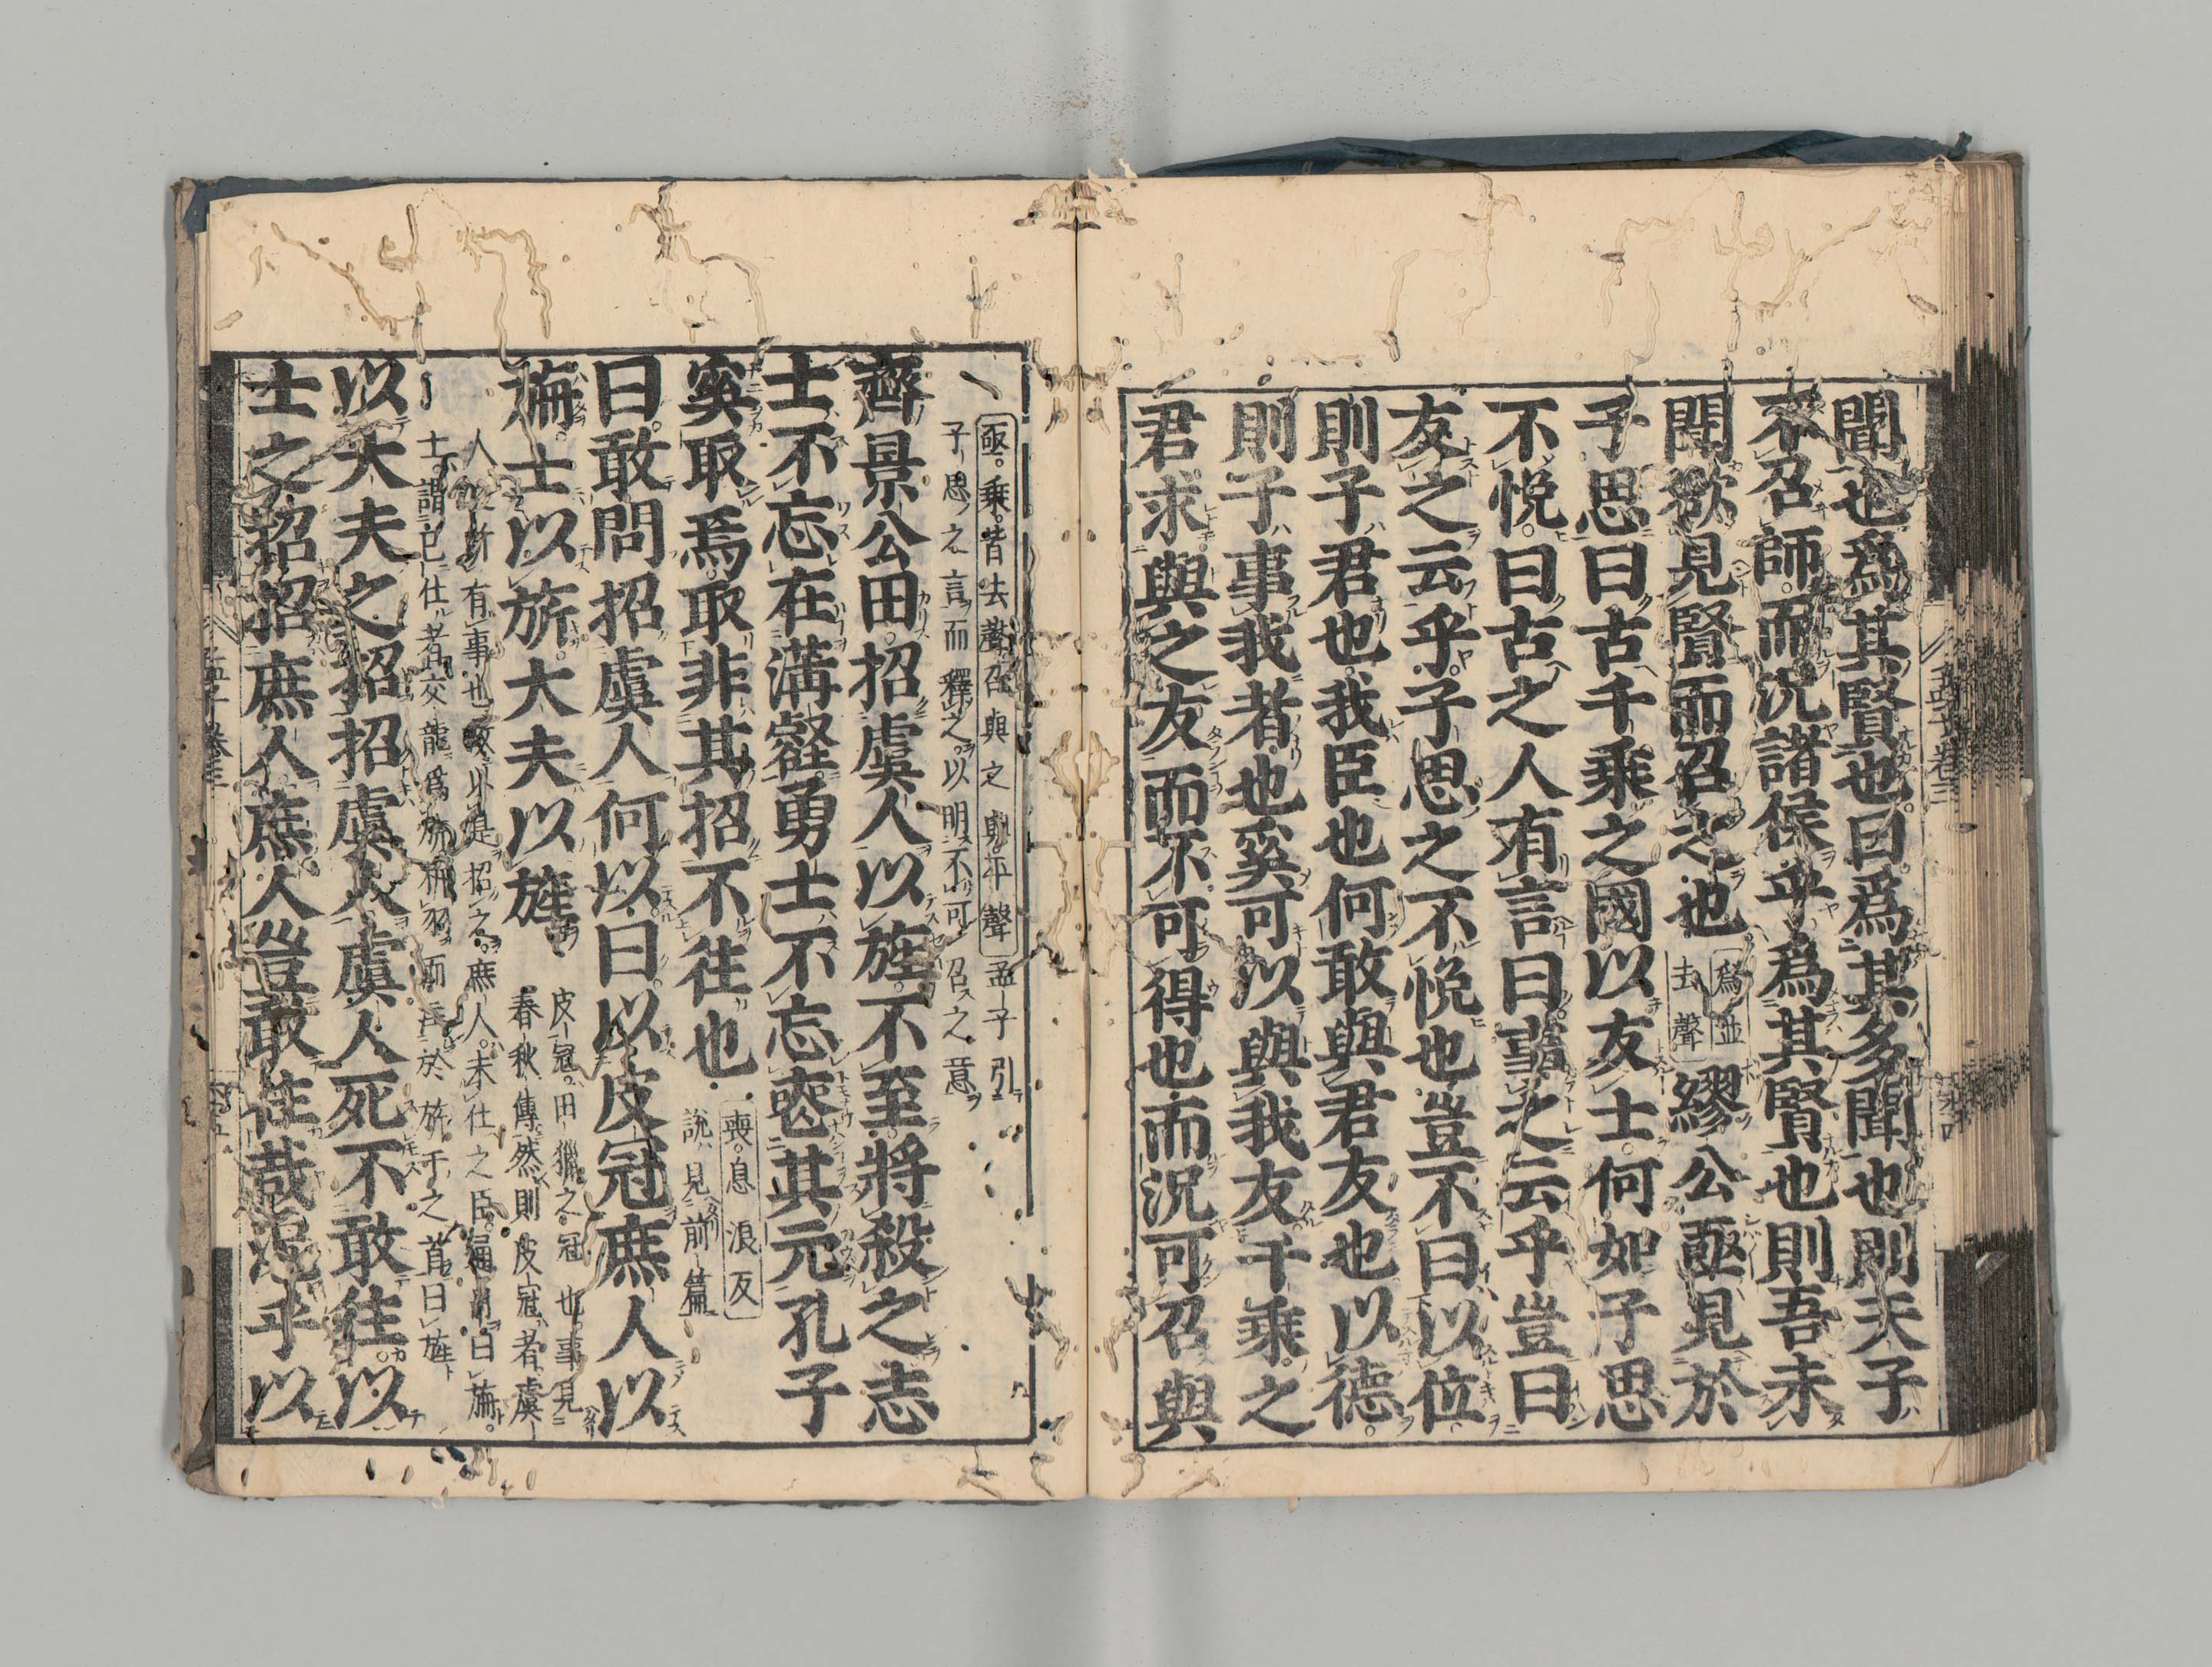 聞也爲其賢也曰爲其多聞也則天子
不召師而況諸侯乎爲其賢也則吾未
聞欲見賢而召之也
爲並
去聲
繆公亟見於
子思曰古千乘之國以友士何如子思
不悅曰古之人有言曰事之云乎豈曰
友之云乎子思之不悅也豈不曰以位
則子君也我臣也何敢與君友也以德
則子事我者也奚可以與我友千乘之
君求與之友而不可得也而況可召與
亟乘皆去聲召與之與平聲
孟子引
子思之言而釋之以明不可召之意
齊景公田招虞人以旌不至將殺之志
士不忘在溝壑勇士不忘喪其元孔子
奚取焉取非其招不往也
喪息浪反
說見前篇
曰敢問招虞人何以曰以皮冠庶人以
旃士以旂大夫以旌
皮冠田獵之冠也事見
春秋傳然則皮冠者虞
人 有事也故以是招之庶人未仕之臣通帛曰旃
士謂已仕者交龍爲旂析羽而 於旂干之首曰旌
以大夫之招招虞人虞人死不敢往以
士之招招庶人庶人豈敢往哉況乎以